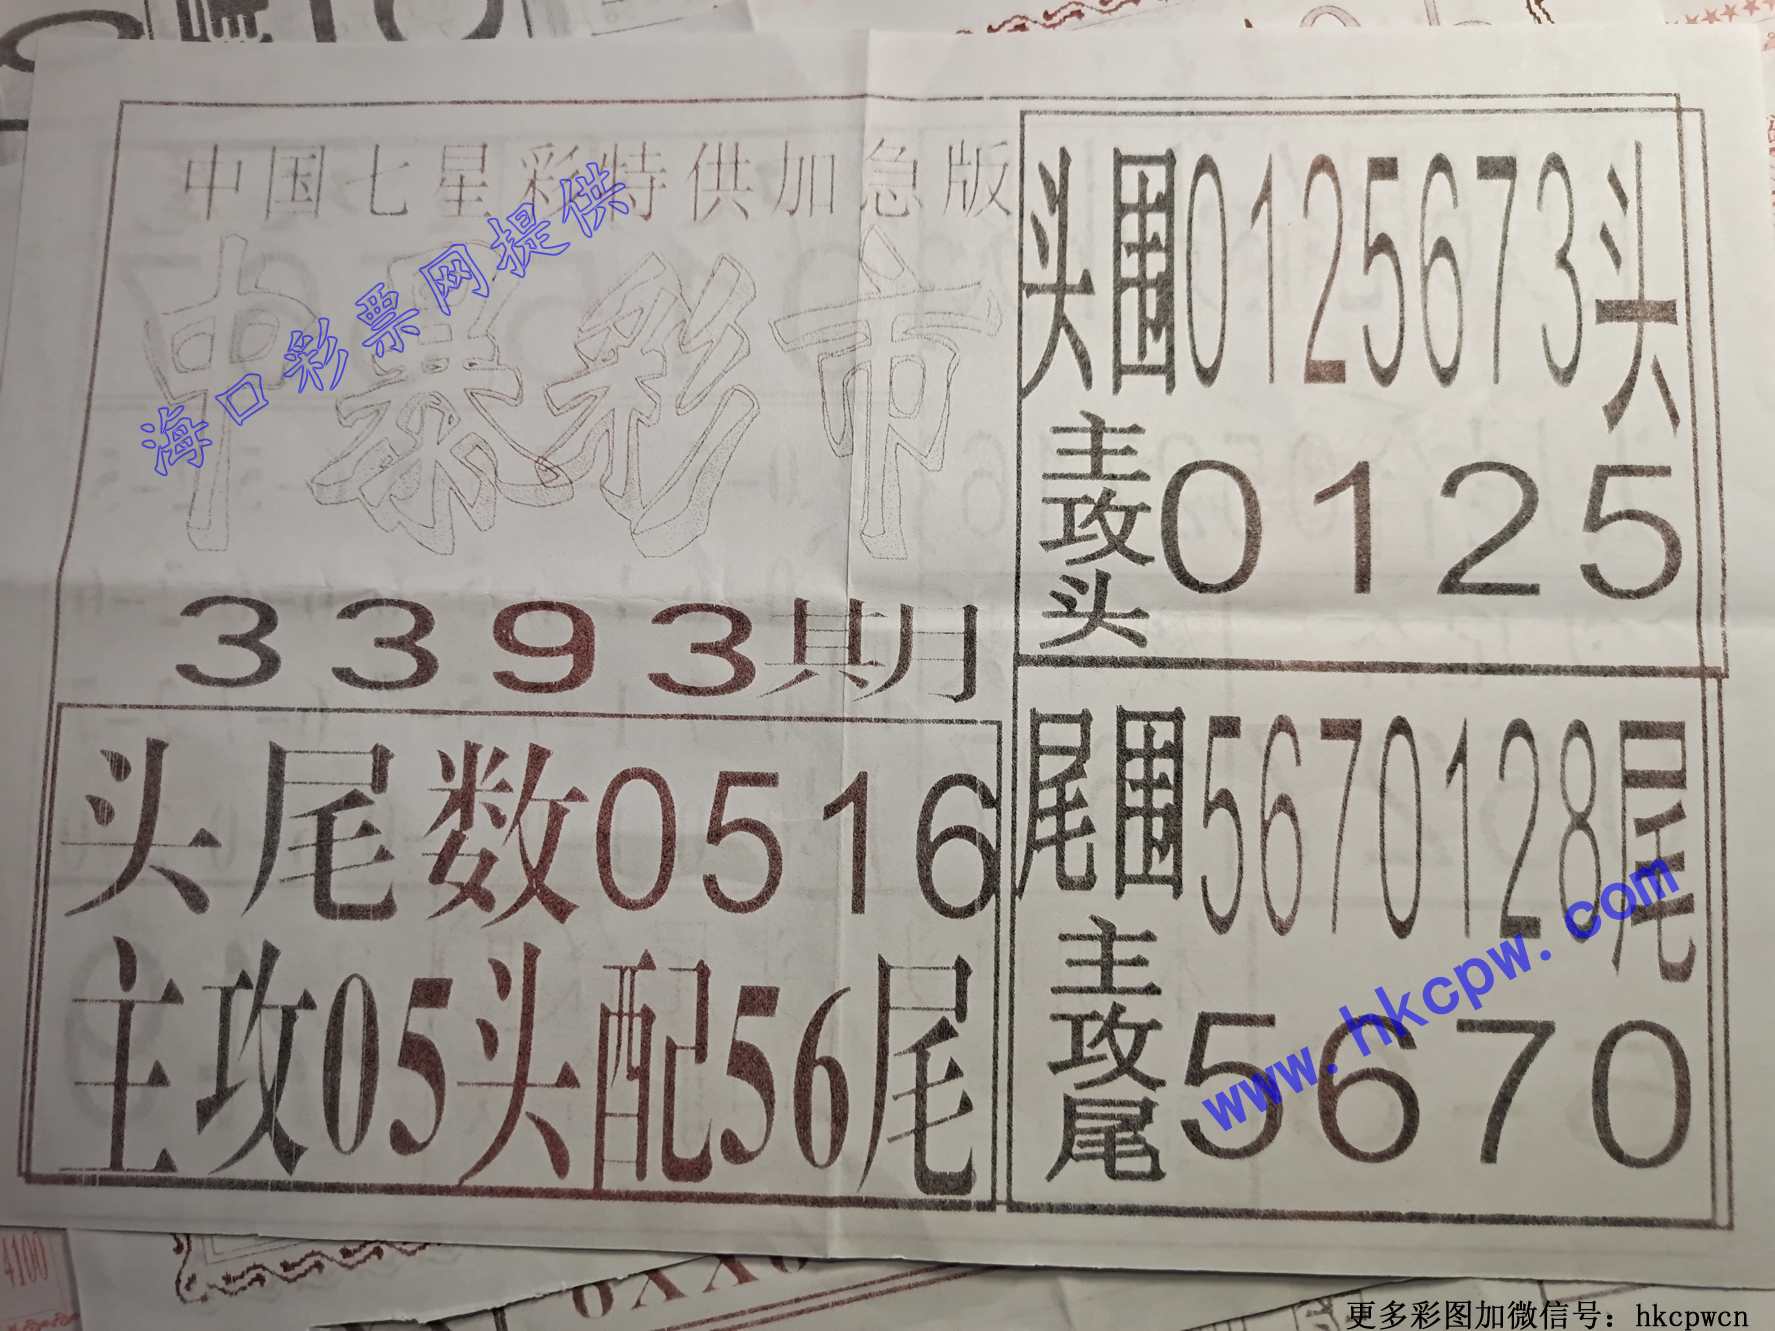 中国七星彩特供加急版
中杀彩市
3393期
头尾数0516
主攻05头配56尾
头围0125673头
主攻头0125
尾围5670128尾
主攻尾5670
海口彩票网提供
www.hkcpw.com
4100
更多彩图加微信号：hkcpwcn